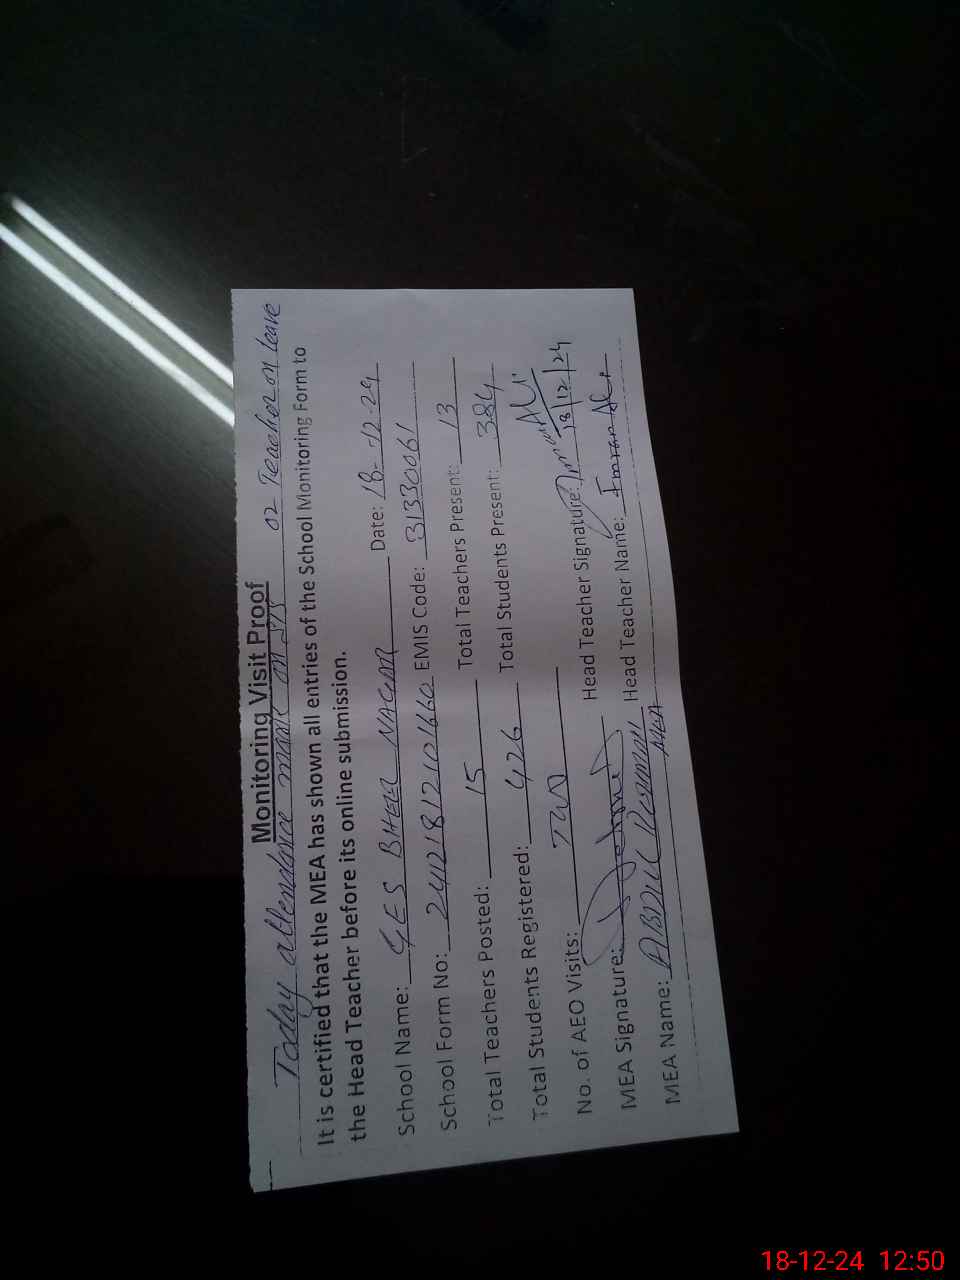 Monitoring Visit Proof
Today attendance mark on SIS 02 Teacher on leave
It is certified that the MEA has shown all entries of the School Monitoring Form to
the Head Teacher before its online submission.
School Name: GES BHEER NAGAR Date: 18-12-24
School Form No: 24121812101660 EMIS Code: 31330061
Total Teachers Posted: 15 Total Teachers Present: 13
Total Students Registered: 426 Total Students Present: 384
No. of AEO Visits: TWO
MEA Signature: Head Teacher Signature: Imran Ali 18/12/24
MEA Name: ABDUL REHMAN MEA Head Teacher Name: Imran Ali
18-12-24 12:50